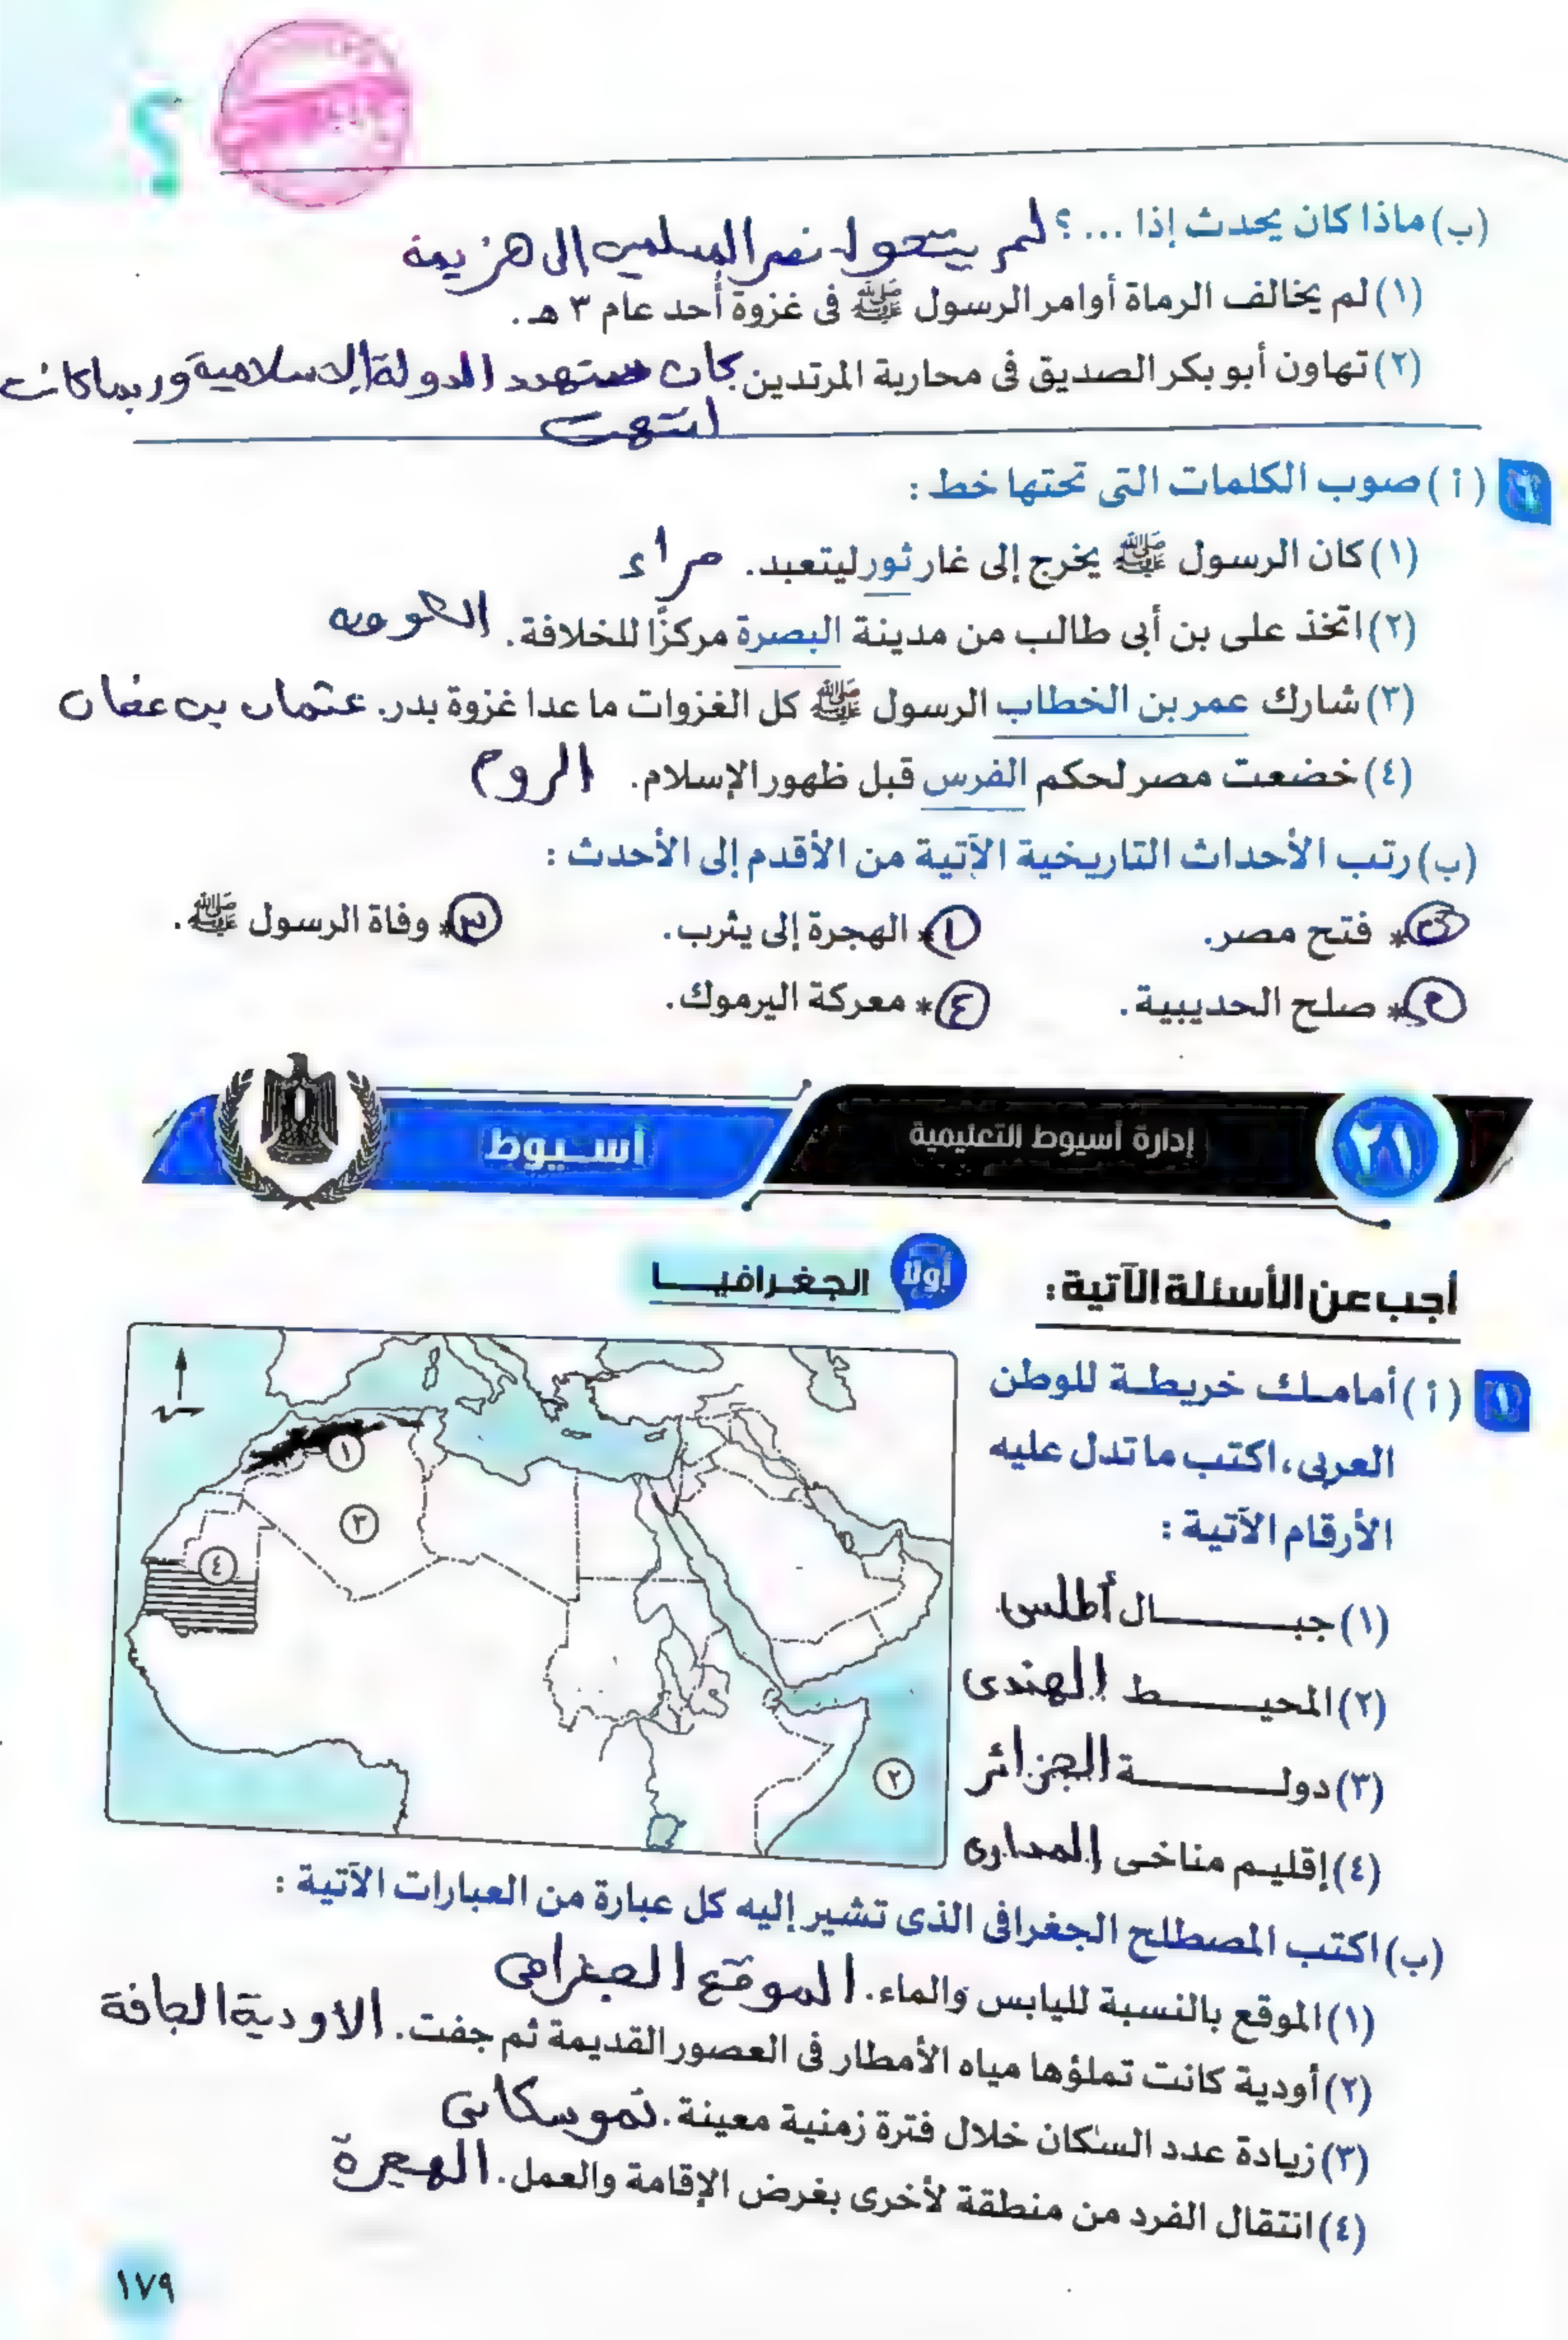 ؟
(ب) ماذا كان يحدث إذا ... ؟ لم يتحول نصر المسلمين إلى هزيمة
(١) لم يخالف الرماة أوامر الرسول ﷺ فى غزوة أحد عام ٣ هـ .
(٢) تهاون أبو بكر الصديق فى محاربة المرتدين. كان ستهدد الدولة الاسلامية وربما كانت
انتهت
٦ (أ) صوب الكلمات التى تحتها خط :
(١) كان الرسول ﷺ يخرج إلى غار ثور ليتعبد. حراء
(٢) اتخذ على بن أبى طالب من مدينة البصرة مركزًا للخلافة. الكوفة
(٣) شارك عمر بن الخطاب الرسول ﷺ كل الغزوات ما عدا غزوة بدر. عثمان بن عفان
(٤) خضعت مصر لحكم الفرس قبل ظهور الإسلام. الروم
(ب) رتب الأحداث التاريخية الآتية من الأقدم إلى الأحدث :
٥ * فتح مصر. ١ * الهجرة إلى يثرب. ٣ * وفاة الرسول ﷺ.
٢ * صلح الحديبية. ٤ * معركة اليرموك.
٢١ إدارة أسيوط التعليمية أسـيوط
أجب عن الأسئلة الآتية :
أولًا الجغـرافيـــا
١ (أ) أمامـك خريطـة للوطن
العربى، اكتب ما تدل عليه
الأرقام الآتية :
(١) جبـــــال أطلس
(٢) المحيـــــط الهندى
(٣) دولـــــة الجزائر
(٤) إقليـم مناخـى المدارى
١
٣
٤
٢
(ب) اكتب المصطلح الجغرافى الذى تشير إليه كل عبارة من العبارات الآتية :
(١) الموقع بالنسبة لليابس والماء. الموقع الجغرافى
(٢) أودية كانت تملؤها مياه الأمطار فى العصور القديمة ثم جفت. الاودية الجافة
(٣) زيادة عدد السكان خلال فترة زمنية معينة. نمو سكانى
(٤) انتقال الفرد من منطقة لأخرى بغرض الإقامة والعمل. الهجرة
١٧٩